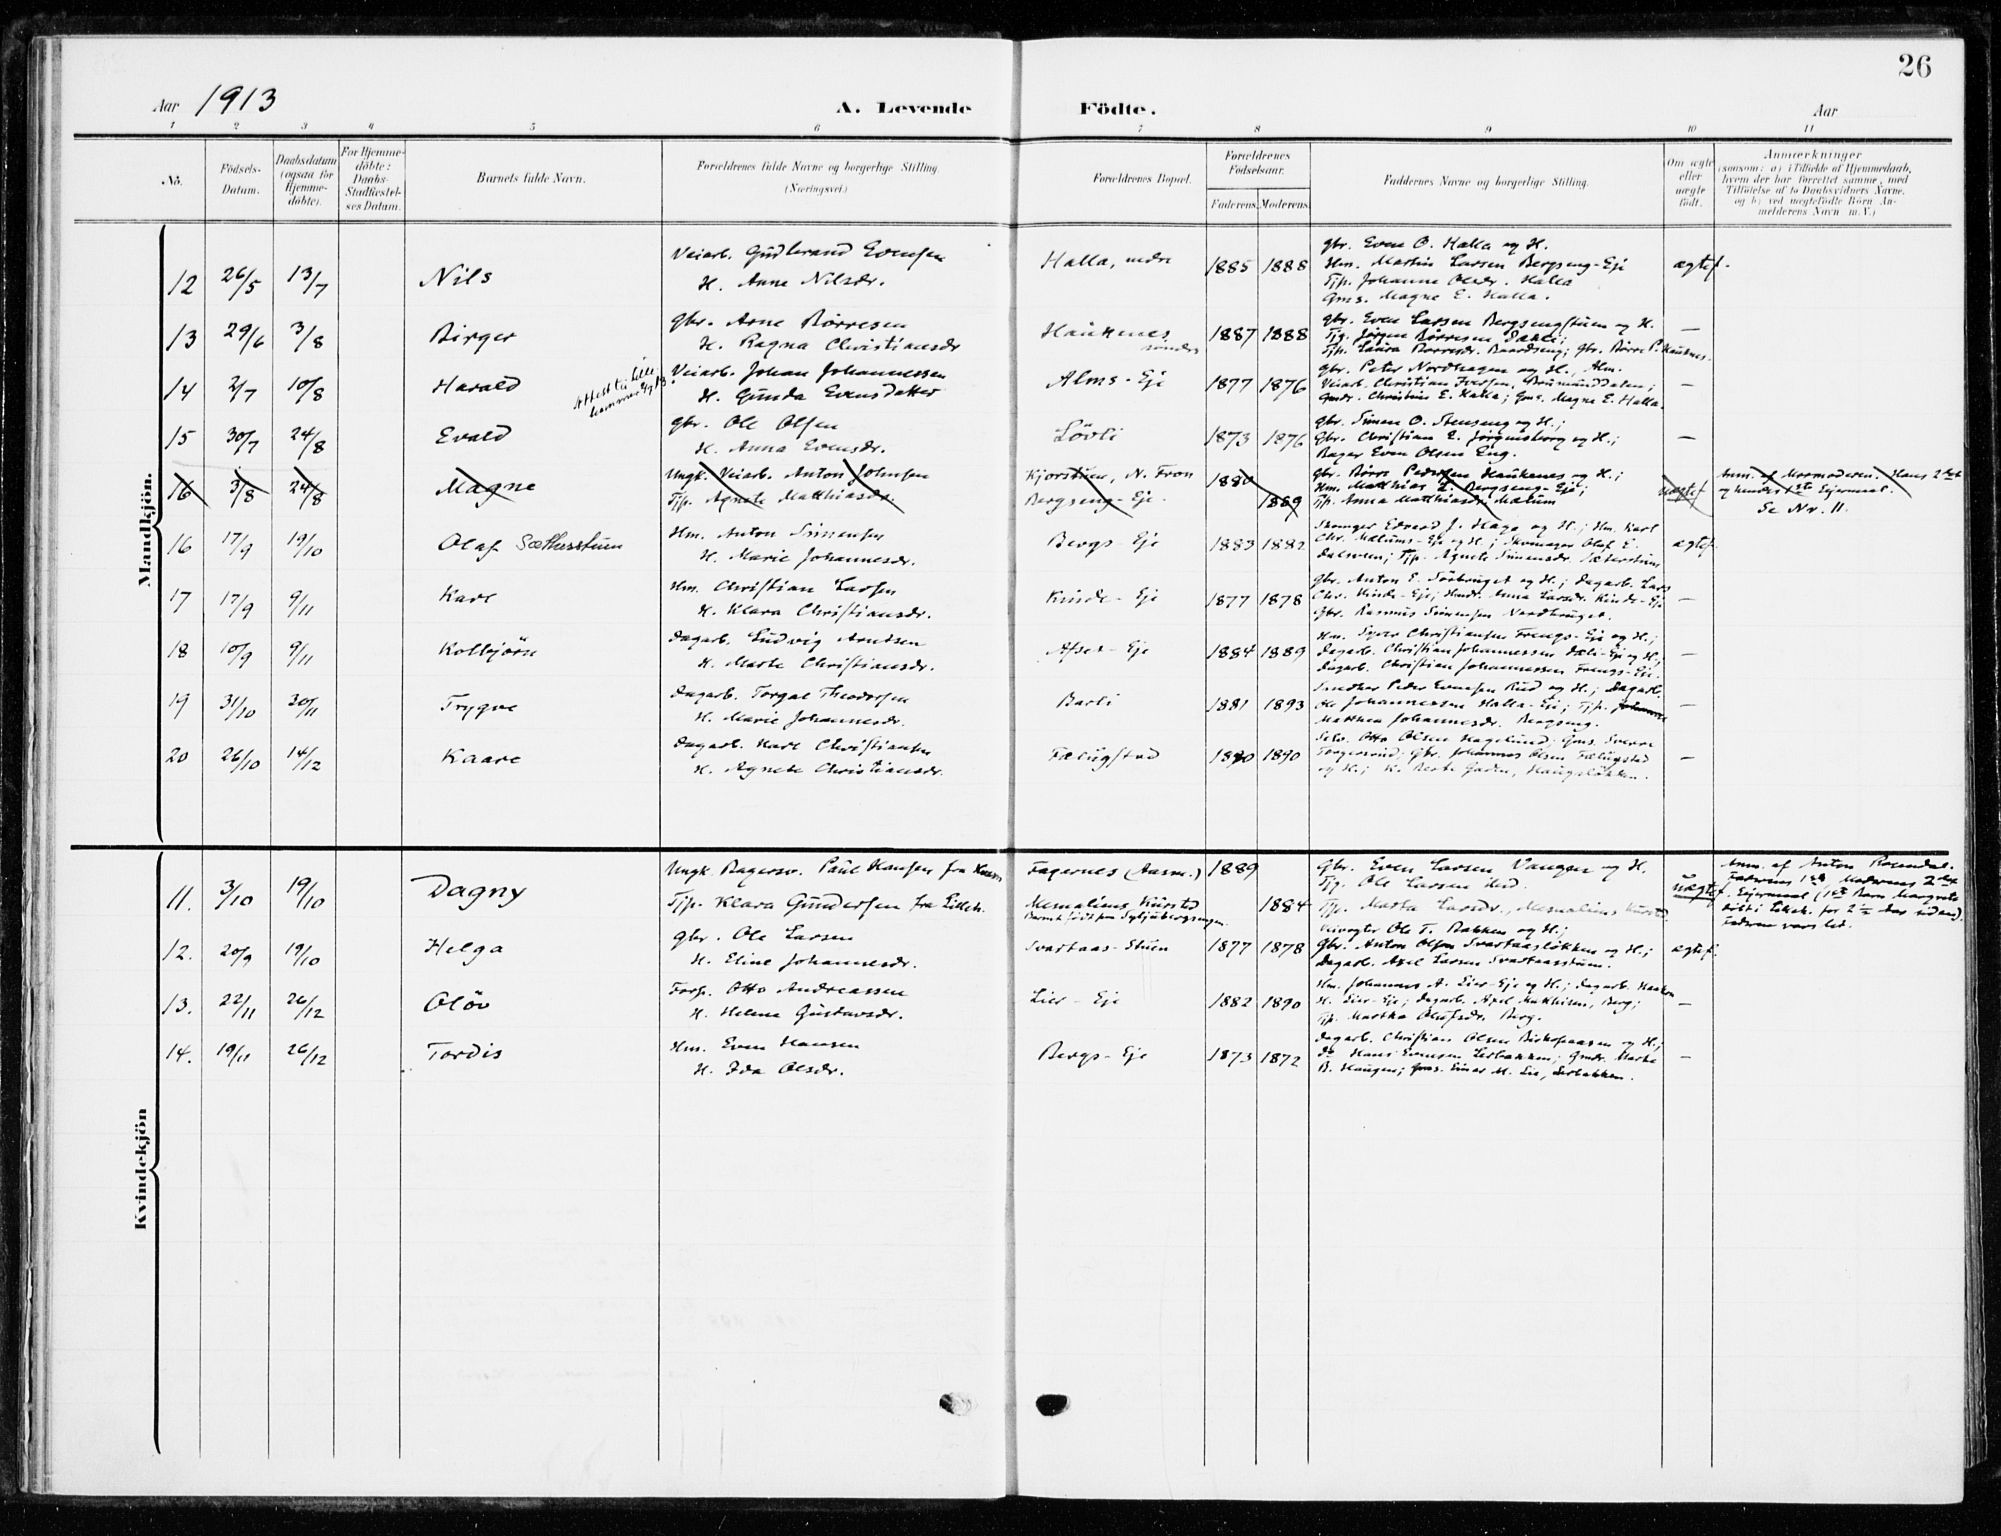 26
Aar 1913
A. Levende Födte.
Aar
1 2 3 4 5 6 7 8 9 10 11
No.
Födsels-Datum.
Daabsdatum (ogsaa for Hjemme-döbte).
For Hjemme-döbte: Daabs-Stadfæstel-ses Datum.
Barnets fulde Navn.
Forældrenes fulde Navne og borgerlige Stilling.
(Næringsvei.)
Forældrenes Bopæl.
Forældrenes Födselsaar.
Faderens. Moderens.
Faddernes Navne og borgerlige Stilling.
Om ægte eller uægte födt.
Anmærkninger
(saasom: a) i Tilfælde af Hjemmedaab, hvem der har forrettet samme, med Tilföielse af to Daabsvidners Navne, og b) ved uægtefödte Börn An-melderens Navn m. V.)
Mandkjön.
12 26/5 13/7 Nils
Veiarb. Gudbrand Evensen
H. Anne Nilsdr.
Halla, nedre 1885 1888
gbr. Even O. Halla og H.
Hm. Martin Larsen Bergseng-Eje
Tjp. Johanne Olsdr. Halla
Gms. Magne E. Halla.
ægtef.
13 29/6 3/8 Birger
gbr. Arne Börresen
H. Ragna Christiansdr
Haukenes söndre 1887 1888
gbr. Even Larsen Bergsengstuen og H.
Tjg. Jörgen Börresen
Tjp. Laura Börresdr. Baardseng; gbr. Börre P. Hauknes.
—
14 2/7 10/8 Harald
Attest til Lille-hammer
Veiarb. Johan Johannessen
H. Gunda Evensdatter
Alms-Eje 1877 1876
gbr. Peter Nordhagen og H., Alm.
Veiarb. Christian Iversen, Brumunddalen;
Gmdr. Christine E. Halla; Gms. Magne E. Halla.
—
15 30/7 24/8 Evald
gbr. Ole Olsen
H. Anna Evensdr.
Lövli 1873 1876
gbr. Simen O. Stenseng og H.;
Gbr. Christian E. Jörgensborg og H.;
Bager Even Olsen Eng.
—
16 3/8 24/8 Magne
Ungk. Veiarb. Anton Johnsen
Tjp. Agnete Matthiasdr.
Kjorstuen, N. Fron
Bergseng-Eje
1880
1889
gbr. Börre Pedersen Haukenes og H.;
Hm. Matthias L. Bergseng-Eje;
Tjp. Anna Matthiasdr. Mælum
uægtef
Anm. af Mormoderen. Hans 2det
og hendes 1ste Leiermaal.
Se Nr. 11.
16 17/9 19/10 Olaf Sætherstuen
Hm. Anton Simensen
H. Marie Johannesdr.
Bergs-Eje 1883 1882
Skomager Edvard J. Haga og H.; Hm. Karl
Chr. Mælums-Eje og H.; Skomager Olaf E.
Dalsveen; Tjp. Agnete Simensdr. Sæterstuen
ægtef.
17 17/9 9/11 Karl
Hm. Christian Larsen
H. Klara Christiansdr.
Kinde-Eje 1877 1878
gbr. Anton E. Sörbruget og H.; Dagarb. Lars
Chr. Kinde-Eje; Hmdr. Anna Larsdr. Kinde-Eje
Gbr. Rasmus Simensen Nordbruget.
—
18 10/9 9/11 Kolbjörn
Dagarb. Ludvig Arntsen
H. Marte Christiansdr.
Afset-Eje 1884 1889
Hm. Syver Christiansen Frengs-Eje og H.;
Dagarb. Christian Johannessen Dæli-Eje og H.;
Dagarb. Christian Johannessen Frengs-Eje.
—
19 31/10 30/11 Trygve
Dagarb. Torgal Theodorsen
H. Marie Johannesdr.
Barli 1881 1893
Snedker Peder Evensen Rud og H.; Dagarb.
Ole Johannessen Halla-Eje; Tjp. Johanne
Matthea Johannesdr. Bergseng.
—
20 26/10 14/12 Kaare
Dagarb. Karl Christiansen
H. Agnete Christiansdr.
Fælugstad 1890 1890
Selv. Otto Olsen Hagelund; Gms. Sverre
Torgersrud; Gbr. Johannes Olsen Fælugstad
og H.; K. Berte Gaden, Haugslökken.
—
Kvindekjön
11. 3/10 19/10 Dagny
Ungk. Bagersv. Paul Hansen fra
Tjp. Klara Gundersen fra Lilleh.
Fagernes (Aasm.) 1889
Mesnaliens Kursted 1884
Barnet födt paa Sykjubergsengen.
Gbr. Even Larsen Vangen og H.
Tjg. Ole Larsen ibid.
Tjp. Marta Larsdr., Mesnaliens Kursted
uægtef
Anm. af Anton Rosendal.
Faderens 1ste Moderens 2det
Leiermaal (1ste Barn Margrete
döbt i Lilleh. for 2½ Aar siden).
12. 20/9 19/10 Helga
gbr. Ole Larsen
H. Eline Johannesdr.
Svartaas-Stuen 1877 1878
Veivogter Ole T. Bakken og H.;
Gbr. Anton Olsen Svartaaslökken og H.;
Dagarb. Axel Larsen Svartaasstuen.
ægtef.
13. 22/11 26/12 Olöv
Forp. Otto Andreassen
H. Helene Gustavsdr.
Lier-Eje 1882 1890
Hm. Johannes A. Lier-Eje og H.; Dagarb. Haakon
H. Lier-Eje; Dagarb. Axel Matthisen, Berg;
Tjp. Martha Olufsdr. Berg.
—
14. 19/11 26/12 Tordis
Hm. Even Hansen
H. Ida Olsdr.
Bergs-Eje 1873 1872
Dagarb. Christian Olsen Biskopaasen og H.;
do Hans Evensen Lerbakken; Gmdr. Marte
B. Haugen; Gms. Einar M. Lie, Lerbakken.
—